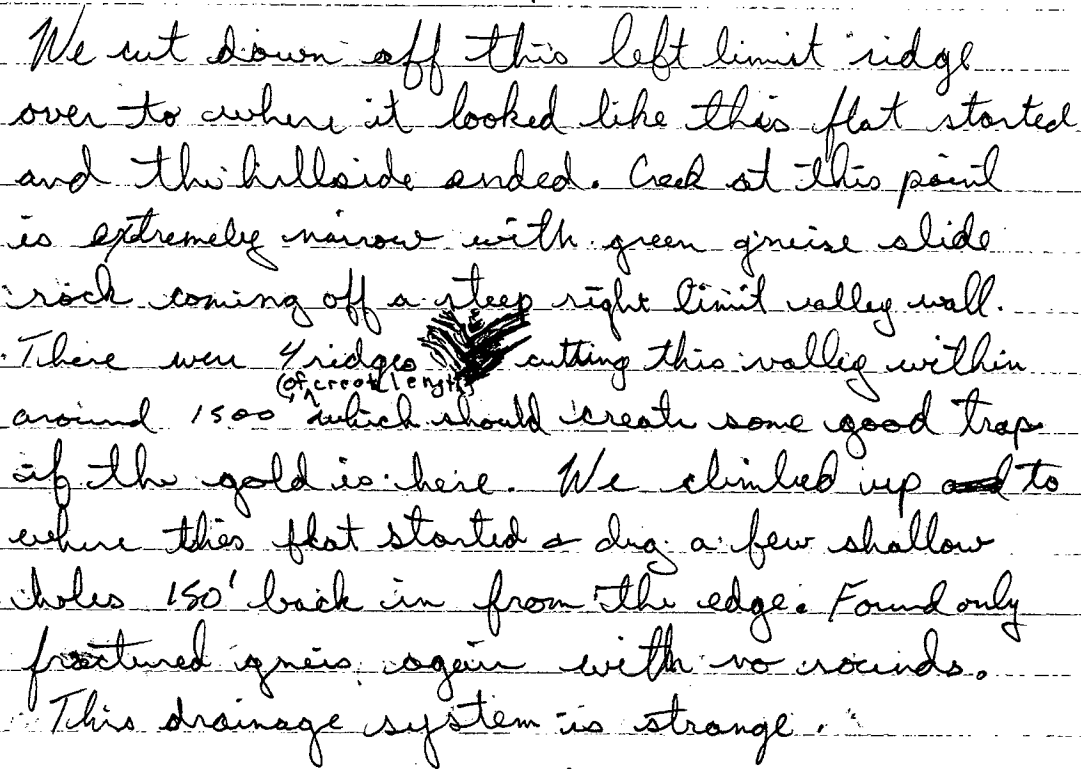 We cut down off this left limit ridge
over to where it looked like this flat started
and the hillside ended. Creek at this point
is extremely narrow with green gneise slide
rock coming off a steep right limit valley wall.
There were 4 ridges cutting this valley within
(of creek length)
around 1500 which should create some good trap
if the gold is here. We climbed up to
where this flat started & dug a few shallow
holes 150' back in from the edge. Found only
fractured gneis again with no rounds.
This drainage system is strange.